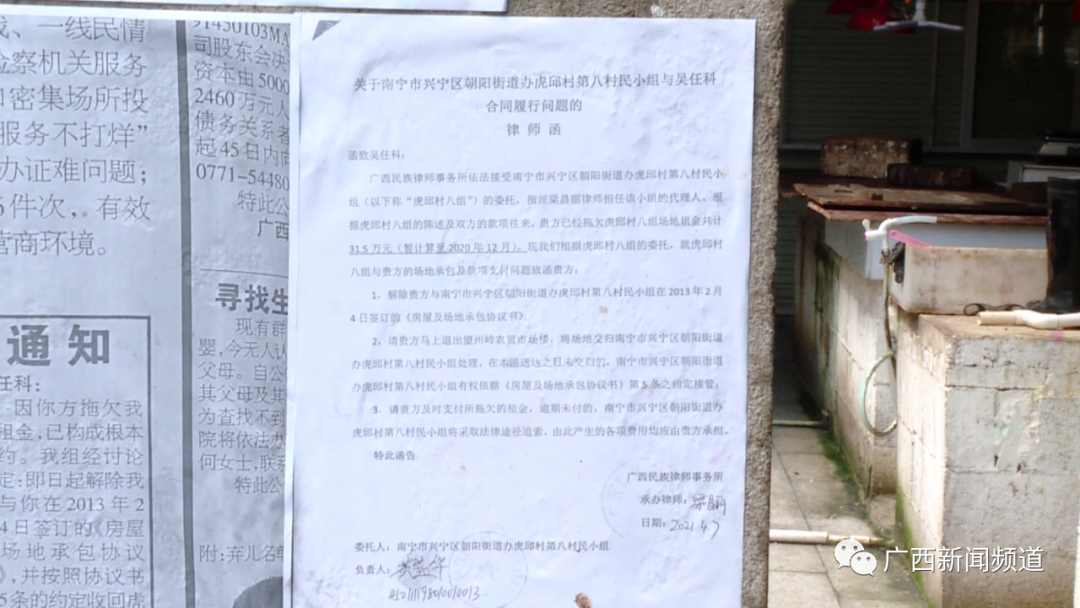 戋、一线民情
检察机关服务
口密集场所投
服务不打烊”
办证难问题；
6件次，有效
营商环境。
91450103MA
司股东会决
资本由5000
2460万元人
债务关系者
起45日内向
0771-54480
特此公
广西
寻找生
现有群
婴，今无人认
父母。自公
其父母及其
为查找不到
院将依法办
何女士，联系
特此公
附：弃儿名单
通知
任科：
因你方拖欠我
租金，已构成根本
约。我组经讨论
定：即日起解除我
与你在2013年2
4日签订的《房屋
场地承包协议
》，并按照协议书
5条的约定收回虎
关于南宁市兴宁区朝阳街道办虎邱村第八村民小组与吴任科
合同履行问题的
律师函
函致吴任科：
广西民族律师事务所依法接受南宁市兴宁区朝阳街道办虎邱村第八村民小
组（以下称“虎邱村八组”）的委托，指派梁昌丽律师担任该小组的代理人。根
据虎邱村八组的陈述及双方的款项往来，贵方已经拖欠虎邱村八组场地租金共计
31.5万元（暂计算至2020年12月）。现我们根据虎邱村八组的委托，就虎邱村
八组与贵方的场地承包及款项支付问题致函贵方：
1、解除贵方与南宁市兴宁区朝阳街道办虎邱村第八村民小组在2013年2月
4日签订的《房屋及场地承包协议书》；
2、请贵方马上退出望州岭农贸市场楼，将场地交归南宁市兴宁区朝阳街道
办虎邱村第八村民小组处理，在本函送达之日未交归的，南宁市兴宁区朝阳街道
办虎邱村第八村民小组有权依据《房屋及场地承包协议书》第5条之约定接管；
3、请贵方及时支付所拖欠的租金，逾期未付的，南宁市兴宁区朝阳街道办
虎邱村第八村民小组将采取法律途径追索，由此产生的各项费用均应由贵方承担。
特此函告
广西民族律师事务所
承办律师：梁昌丽
日期：2021.4.7
委托人：南宁市兴宁区朝阳街道办虎邱村第八村民小组
负责人：
广西新闻频道